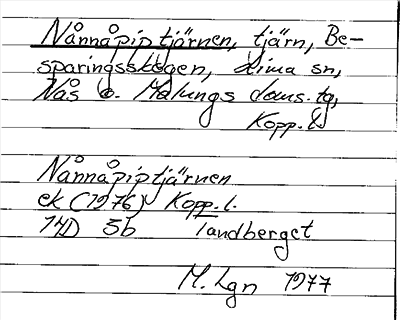 Nånnåpiptjärnen, tjärn, Be-
sparingsskogen, Lima sn,
Nås o. Malungs doms. tg,
Kopp. l.
Nånnåpiptjärnen
ek (1976) Kopp. l.
14D 5b Tandberget
M. Lgn 1977